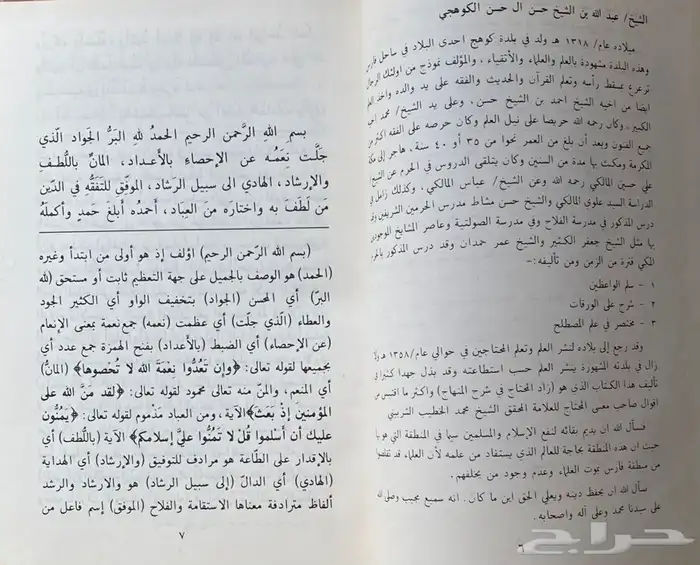 الشيخ/ عبد الله بن الشيخ حسن آل حسن الكوهجي
ميلاده عام/ ١٣١٨ هـ ولد في بلدة كوهج احدى البلاد في ساحل فارس
وهذه البلدة مشهودة بالعلم والعلماء والأتقياء، والمؤلف نموذج من اولئك الرجال
ترعرع بمسقط رأسه وتعلم القرآن والحديث والفقه على يد والده واخذ العلم
ايضا من اخيه الشيخ احمد بن الشيخ حسن، وعلى يد الشيخ/ محمد
الكبير. وكان رحمه الله حريصا على نيل العلم وكان حرصه على الفقه اكثر من
جميع الفنون وبعد أن بلغ من العمر نحوا من ٣٥ أو ٤٠ سنة، هاجر إلى مكة
المكرمة ومكث بها مدة من السنين وكان يتلقى الدروس في الحرم عن الشيخ
علي حسين المالكي رحمه الله وعن الشيخ/ عباس المالكي، وكذلك زامل في
الدراسة السيد علوي المالكي والشيخ حسن مشاط مدرس الحرمين الشريفين وقد
درس المذكور في مدرسة الفلاح وفي مدرسة الصولتية وعاصر المشايخ الموجودين
بها مثل الشيخ جعفر الكثيير والشيخ عمر حمدان وقد درس المذكور بالحرم
المكي فترة من الزمن ومن تأليفه:-
١ - سلم الواعظين
٢ - شرح على الورقات
٣ - مختصر في علم المصطلح
وقد رجع إلى بلاده لنشر العلم وتعلم المحتاجين في حوالي عام/ ١٣٥٨ هـ ولا
زال في بلدته المشهورة ينشر العلم حسب استطاعته وقد بذل جهدا كثيرا في
تأليف هذا الكتاب الذي هو (زاد المحتاج في شرح المنهاج) واكثر ما اقتبس من
اقوال صاحب مغنى المحتاج للعلامة المحقق الشيخ محمد الخطيب الشربيني
فنسأل الله ان يديم بقائه لنفع الإسلام والمسلمين سيما في المنطقة التي هو بها
حيث ان هذه المنطقة بحاجة للعالم الذي يستفاد من علمه لأن العلماء قد تقلصوا
من منطقة فارس بموت العلماء وعدم وجود من يخلفهم.
نسأل الله ان يحفظ دينه ويعلي الحق اين ما كان. انه سميع مجيب وصلى الله
على سيدنا محمد وعلى آله واصحابه.
٦
بسم الله الرَّحمن الرحيم الحمدُ لله البَرُّ الجَواد الّذي
جَلَّت نِعَمُه عن الإحصاءِ بالأعداد، المانُّ باللُّطفِ
والإرشاد، الهادي الى سبيل الرَشاد، الموفّق للتَفَقُّهِ في الدّين
مَن لَطَفَ به واختارَه منَ العِبَاد، أحمدُه أبلغَ حَمدٍ وأكملَهُ
(بسم الله الرّحمن الرحيم) اؤلف إذ هو أولى من ابتدأ وغيره
(الحمد) هو الوصف بالجميل على جهة التعظيم ثابت أو مستحق (لله
البرّ) أي المحسن (الجواد) بتخفيف الواو أي الكثير الجود
والعطاء (الّذي جلّت) أي عظمت (نعمه) جمع نعمة بمعنى الإنعام
(عن الإحصاء) أي الضبط (بالأعداد) بفتح الهمزة جمع عدد أي
بجميعها لقوله تعالى: ﴿وإن تَعُدُّوا نِعْمَةَ الله لا تُحصوها﴾ (المانُّ)
أي المنعم، والمنّ منه تعالى محمود لقوله تعالى: ﴿لقد مَنَّ الله على
المؤمنين إذْ بعَثَ﴾ الآية، ومن العباد مذموم لقوله تعالى: ﴿يَمُنُّون
عليك أن أسلموا قُلْ لا تَمنُّوا عليَّ إسلامكم﴾ الآية (باللُّطف) أي
بالإقدار على الطّاعة هو مرادف للتوفيق (والإرشاد) أي الهداية
(الهادي) أي الدالّ (إلى سبيل الرشاد) هو والارشاد والرشد
ألفاظ مترادفة معناها الاستقامة والفلاح (الموفق) إسم فاعل من
٧
حراج